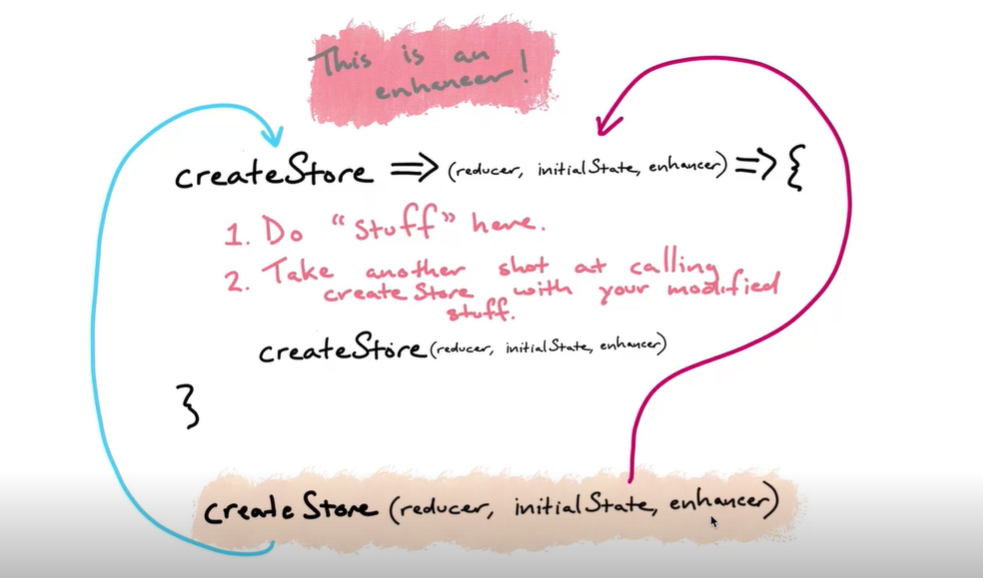 This is an
enhancer!
createStore => (reducer, initialState, enhancer) => {
1. Do "stuff" here.
2. Take another shot at calling
createStore with your modified
stuff.
createStore (reducer, initialState, enhancer)
}
createStore (reducer, initialState, enhancer)